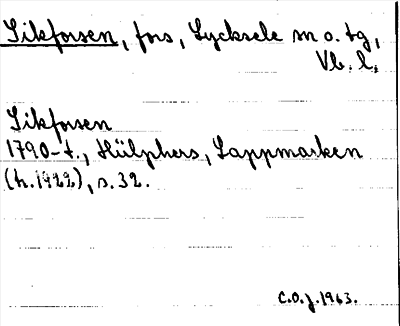 Sikforsen, fors, Lycksele sn o. tg,
Vb. l.
Sikforsen
1790-t., Hülphers, Lappmarken
(h.1922), s.32.
C.O.J.1963.